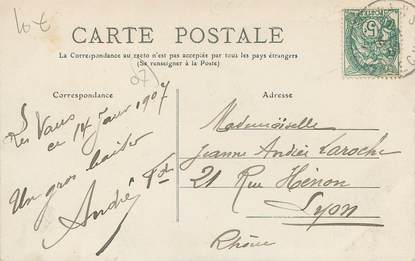 10 €
CARTE POSTALE
La Correspondance au recto n'est pas acceptée par tous les pays étrangers
(Se renseigner à la Poste)
(07)
Correspondance
Adresse
Les Vans
ce 14 Janv 1907
Un gros baiser
André
Mademoiselle
Jeanne Andrée Laroche
21 Rue Hénon
Lyon
Rhône
5